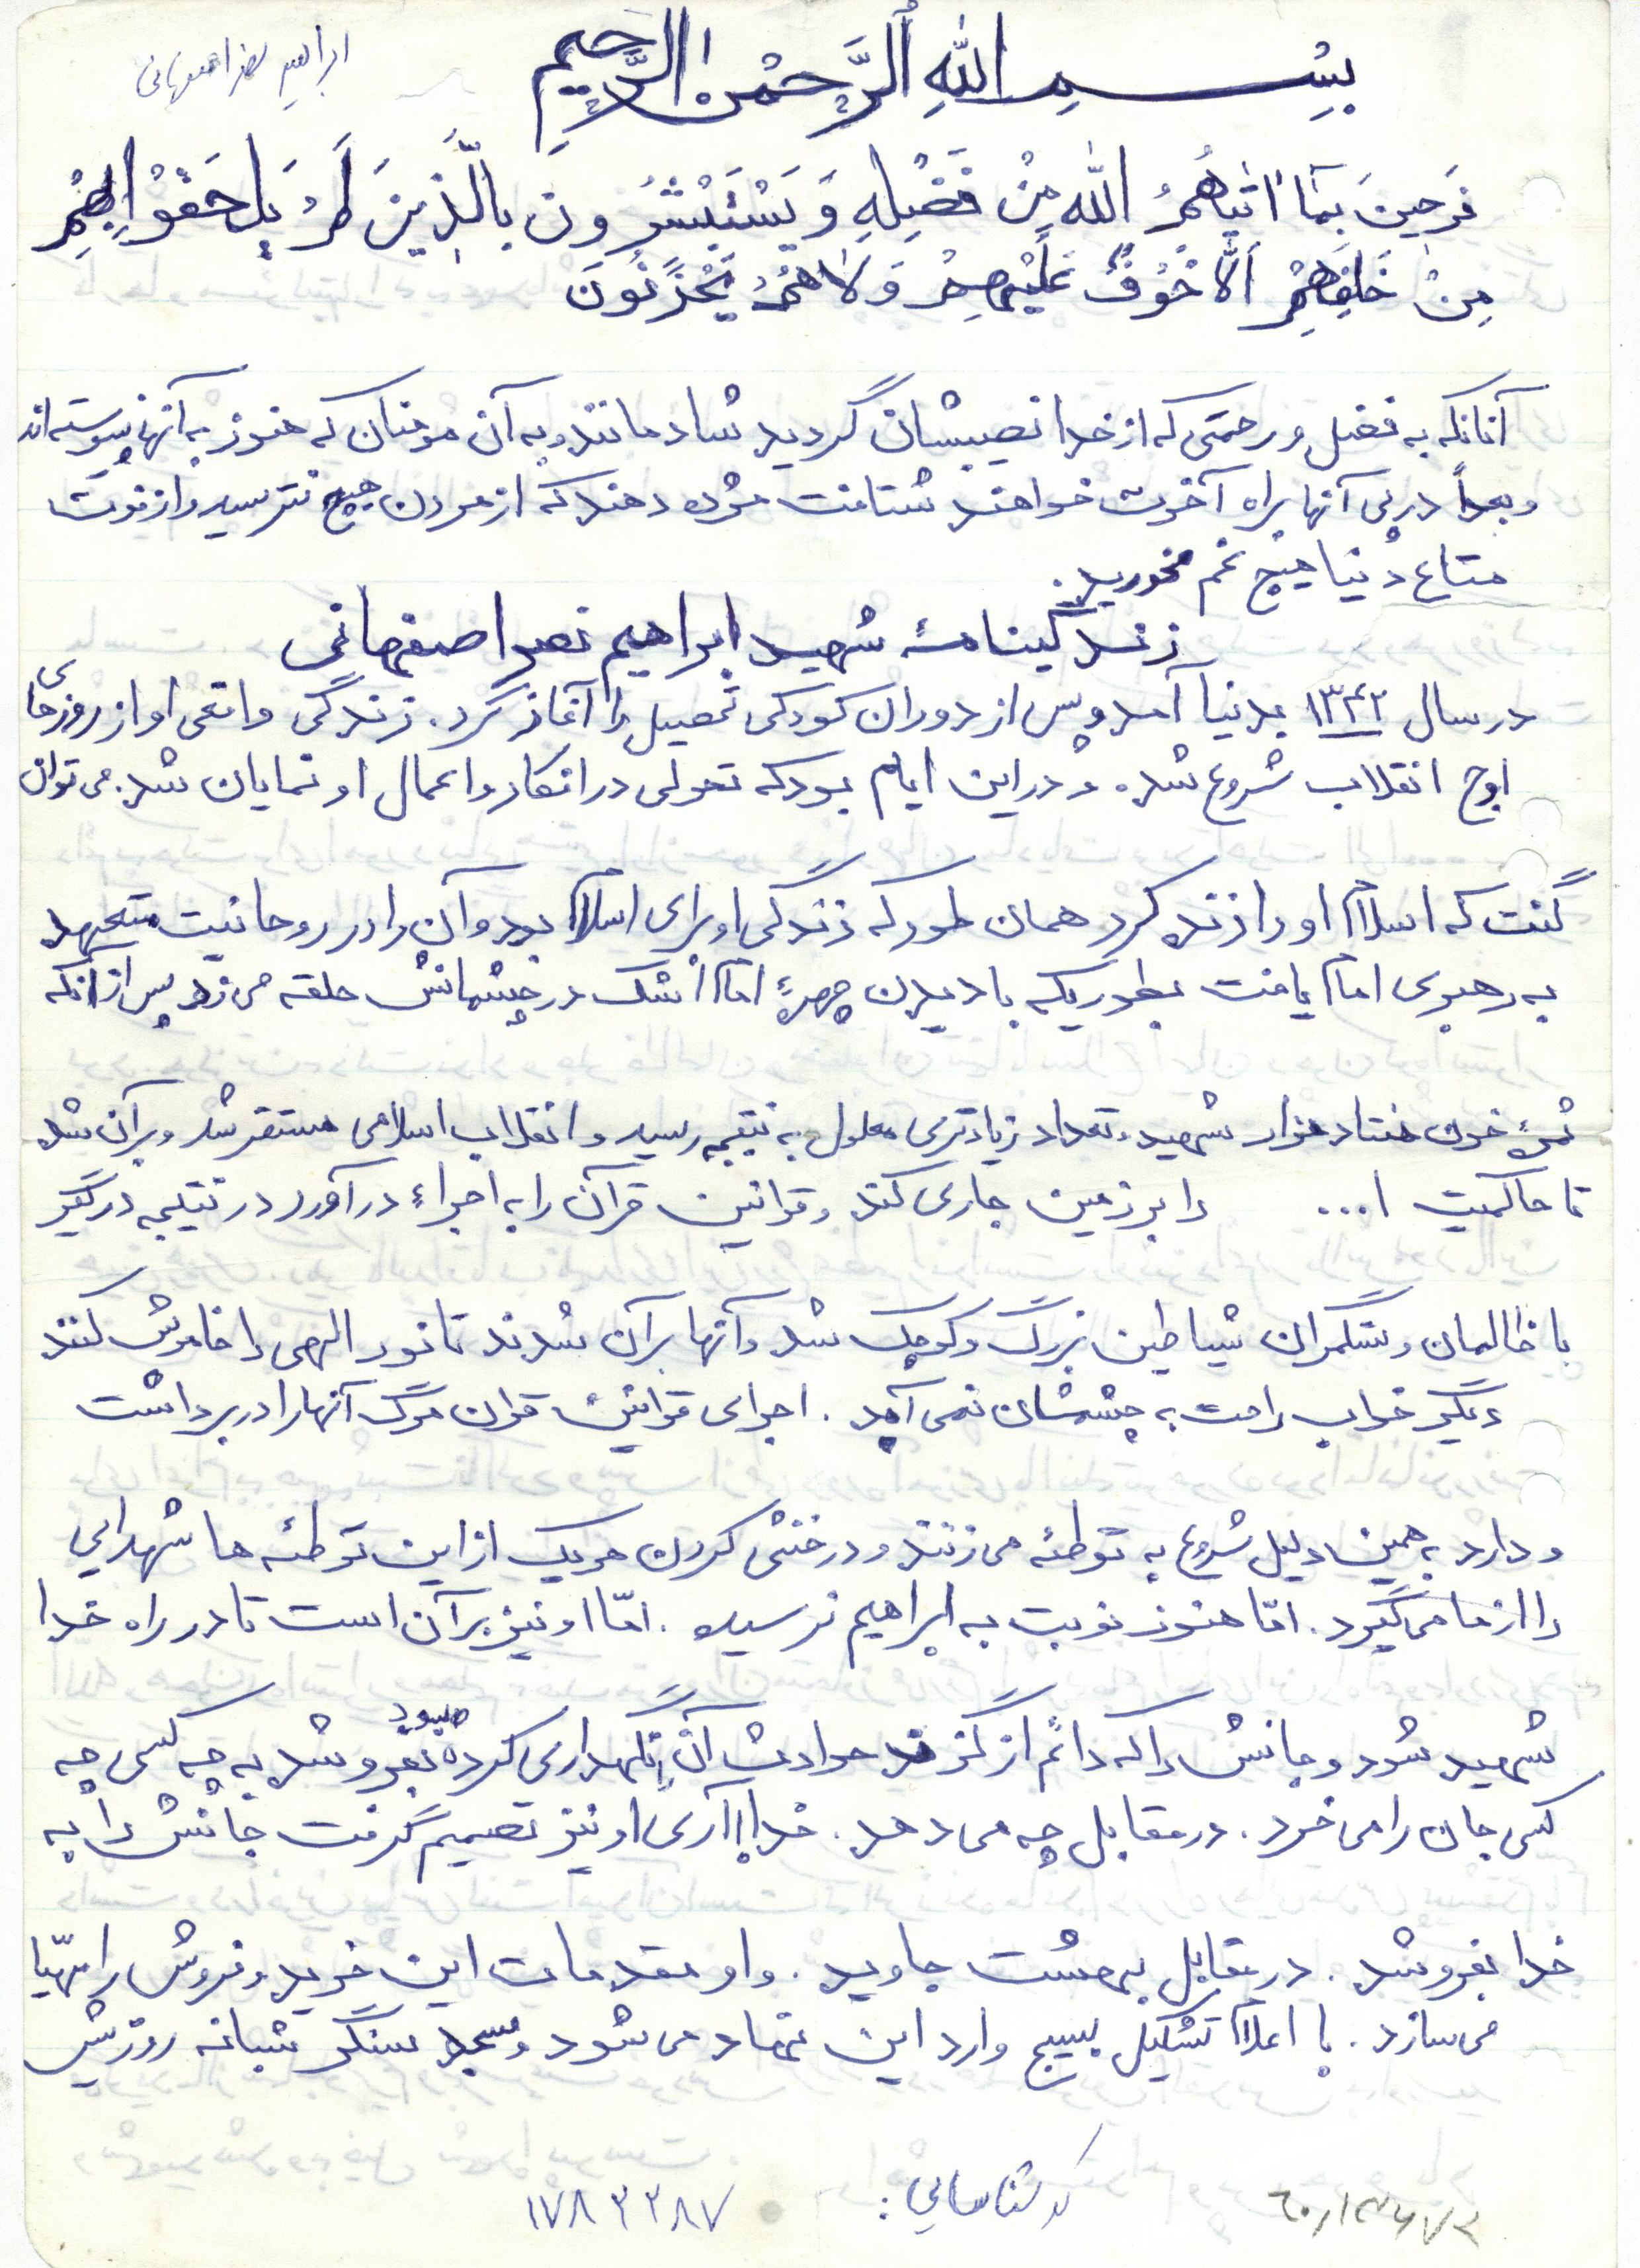 ابراهیم نصر اصفهانی
بِسْمِ اللهِ الرَّحْمٰنِ الرَّحیمِ
فَرِحینَ بَمَا اتٰیهُمُ اللهُ مِنْ فَضْلِهِ وَ یَسْتَبْشِرُونَ بِالَّذینَ لَمْ یَلْحَقوْا بِهِمْ
مِنْ خَلْفِهِمْ اَلّا خَوْفٌ عَلَیْهِمْ وَلاٰهُمْ یَحْزَنُونَ
آنانکه به فضل و رحمتی که از خدا نصیبشان گردید شادمانند و به آن مومنان که هنوز به آنها نپیوسته‌اند
و بعداً در پی آنها براه آخرت خواهند شتافت مژده دهند که از مردن هیچ نترسید و از فوت
متاع دنیا هیچ غم مخورید.
زندگینامهٔ شهید ابراهیم نصر اصفهانی
در سال ۱۳۴۲ بدنیا آمد و پس از دوران کودکی تحصیل را آغاز کرد. زندگی واقعی او از روزهای
اوج انقلاب شروع شده و در این ایام بود که تحولی در افکار و اعمال او نمایان شد. می توان
گفت که اسلام او را زنده کرد همان طور که زندگی او برای اسلام بود و آن را در روحانیت متعهد
به رهبری امام یافت بطوریکه با دیدن چهرهٔ امام اشک در چشمانش حلقه می زد پس از آنکه
ثمرهٔ خون هفتاد هزار شهید و تعداد زیادتری معلول به نتیجه رسید و انقلاب اسلامی مستقر شد و برآن شد
تا حاکمیت ا... را بر زمین جاری کند و قوانین قرآن را به اجراء درآورد در نتیجه درگیر
با ظالمان و ستمگران شیاطین بزرگ و کوچک شد و آنها برآن شدند تا نور الهی را خاموش کنند
دیگر خواب راحت به چشمشان نمی آمد. اجرای قوانین قران مرگ آنها را در بر داشت
و دارد به همین دلیل شروع به توطئه می زنند و در خنثی کردن هر یک از این توطئه ها شهدایی
را از ما می گیرد. امّا هنوز نوبت به ابراهیم نرسیده. امّا او نیز برآن است تا در راه خدا
شهید شود و جانش را که دائم از گزند حوادث آن نگهداری کرده بود بفروشد به چه کسی چه
کسی جان را می خرد. در مقابل چه می دهد. خدا! آری او نیز تصمیم گرفت جانش را به
خدا بفروشد. در مقابل بهشت جاوید. و او مقدمات این خرید و فروش را مهّیا
می سازد. با اعلام تشکیل بسیج وارد این نهاد می شود و مسجد سنگر شبانه روزیش
کد شناسایی: ۱۷۸۳۳۸۷